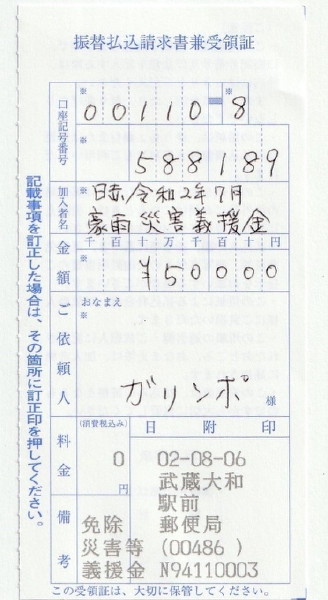 振替払込請求書兼受領証
口座記号番号
※
00110
8
※
588189
加入者名
※
日赤令和2年7月
豪雨災害義援金
金額
千百十万千百十円
※
¥50000
ご依頼人
おなまえ
※
ガリンポ 様
料金
(消費税込み)
0
円
日 附 印
02-08-06
武蔵大和
駅前
郵便局
備考
免除
災害等 (00486 )
義援金 N94110003
この受領証は、大切に保管してください。
記載事項を訂正した場合は、その箇所に訂正印を押してください。